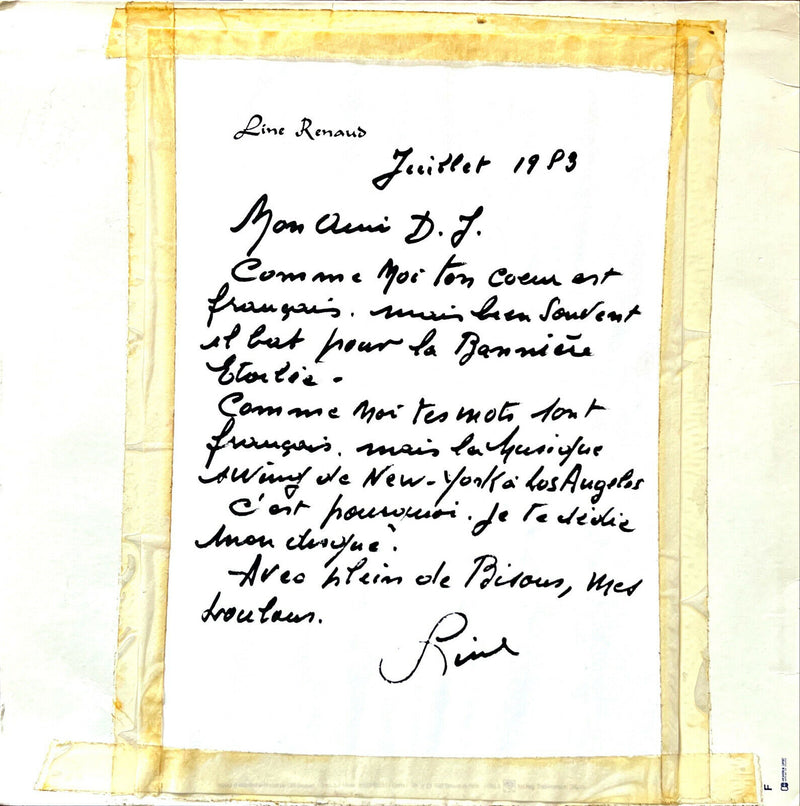 Line Renaud
Juillet 1983
Mon Ami D. J.
Comme Moi ton coeur est
français. mais bien Souvent
il bat pour la Bannière
Etoilée.
Comme Moi tes mots sont
français. mais la Musique
swing de New-York à Los Angeles
C'est pourquoi. Je te dédie
mon disque.
Avec plein de Bisous, mes
loulous.
Line
F